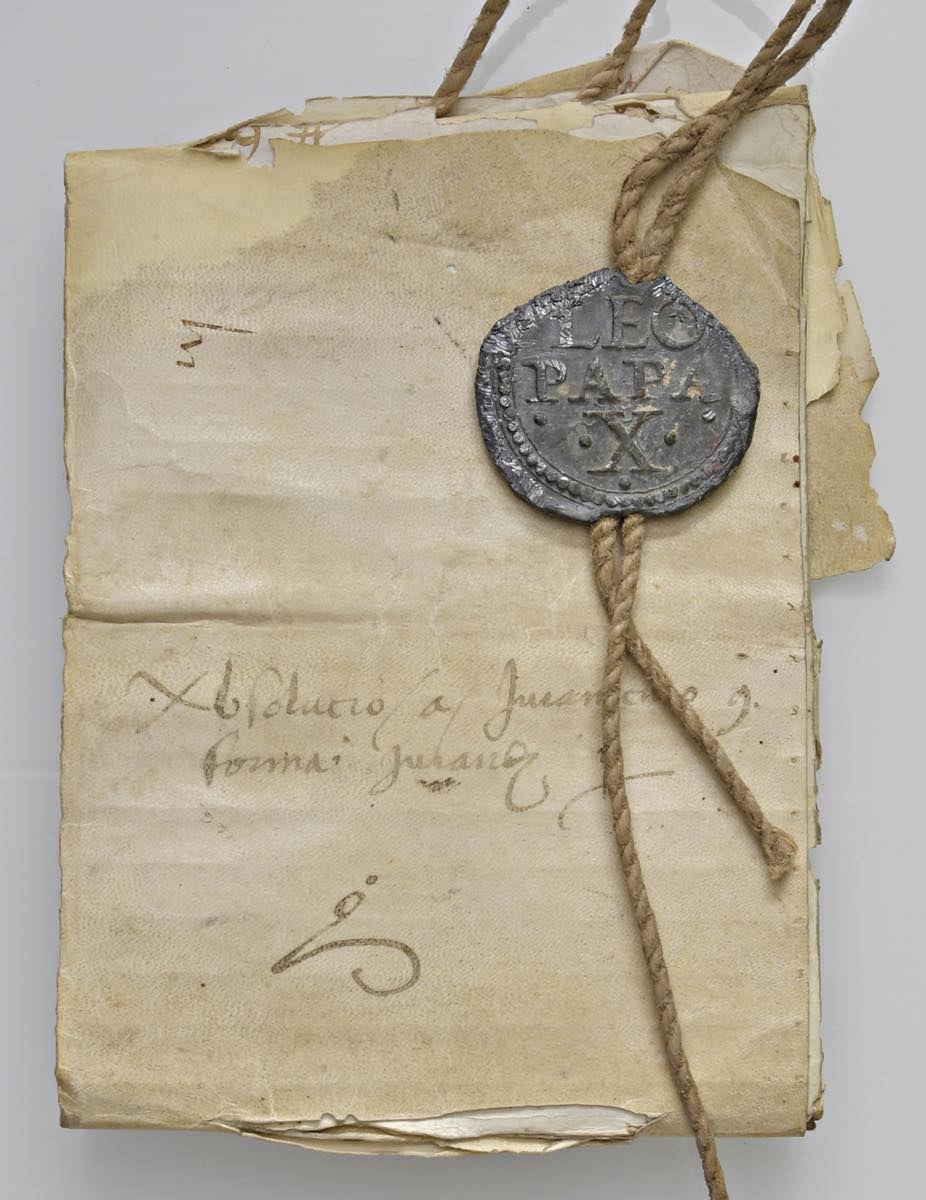 LEO
PAPA
X
Absolutio a Juramento
forma Jurandi